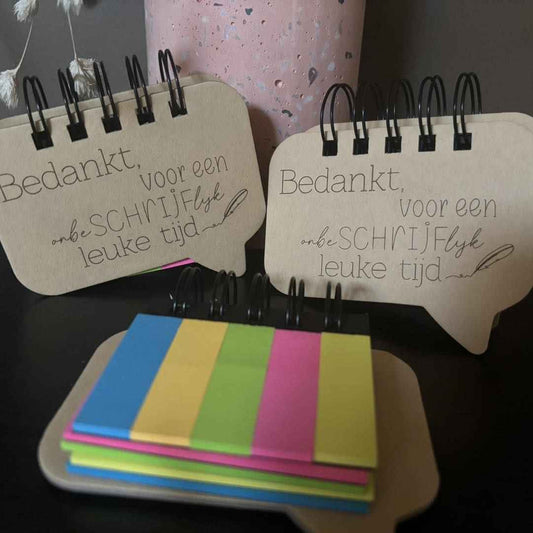 Bedankt,
voor een
onbeSCHRIJFlyk
leuke tijd
Bedankt,
voor een
onbeSCHRIJFlyk
leuke tijd